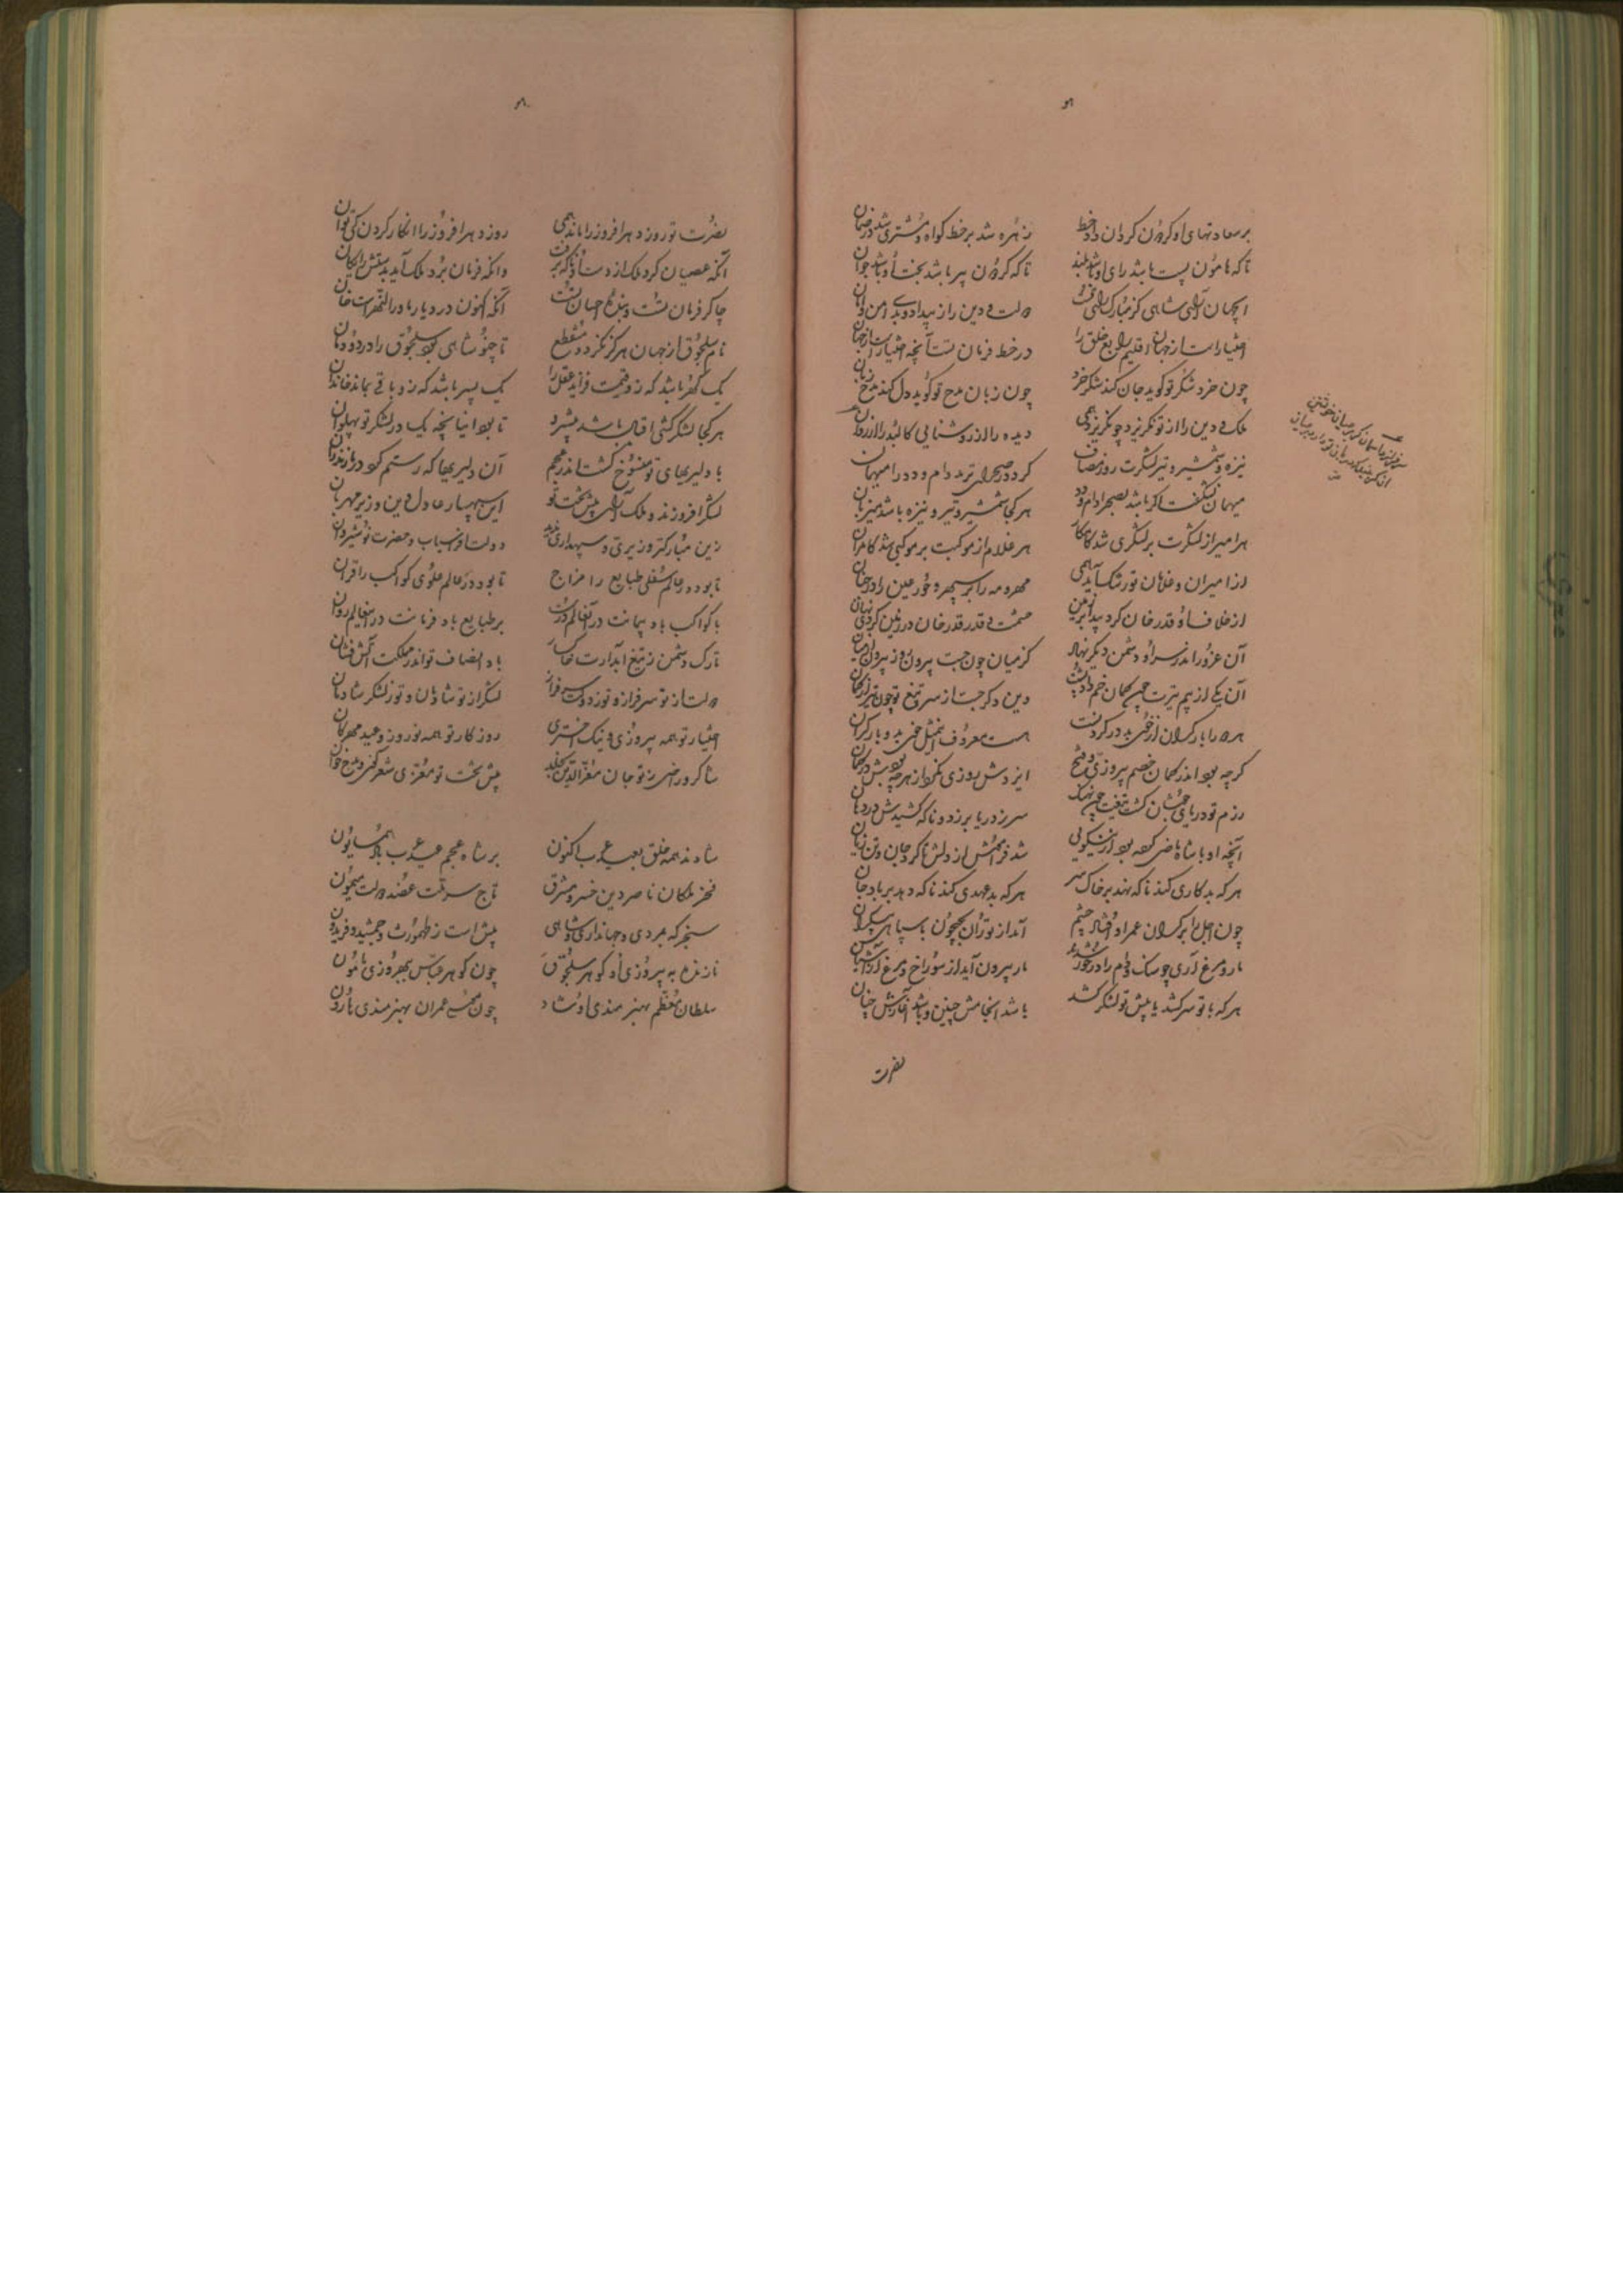 بر سعادتهای او گردون گردان داد خط زهره شد بر خط گواه و مشتری شد در ضمان
تا که هامون پست باشد رای او باشد بلند تا که گردون پیر باشد بخت او باشد جوان
ای جهان آرای شاهی کز مبارک رای تو دولت و دین را ز بیدادی بدی امن و امان
اختیار است از جهان اقلیم رابع خلق را در خط فرمان تست آنچه اختیار است از جهان
چون خرد شکر تو گوید جان کند شکر خرد چون زبان مدح تو گوید دل کند مدح زبان
ملک و دین را از تو نگریزد چو نگریزد همی دیده را از روشنایی کالبد را از روان
نیزه و شمشیر و تیر لشکرت روز مصاف کرد در صحرای ترمد دام و دد را میهمان
میهمان نشگفت اگر باشد بصحرا دام و دد هر کجا شمشیر و تیر و نیزه باشد میزبان
هر امیر از لشکرت بر لشکری شد کامکار هر غلام از موکبت بر موکبی شد کامران
از امیران و غلامان تو رشک آید همی مهر و مه را بر سپهر و حور عین را در جنان
از خلاف او قدرخان کرد پیدا بر زمین حشمت و قدر قدرخان در زمین کردی نهان
آن غرور اندر سر او دشمن دیگر نهاد کز میان چون جست بیرون و ز بیرون در میان
آن یکی از بیم تیرت چون کمان خم داد پشت وین دگر جست از سر تیغ تو چون تیر از کمان
هر که را بار گران از خر بدر گردنت هست معروف این مثل خر به و بار گران
گرچه بود اندر گمان خصم پیروزی و فتح ایزدش روزی نکرد از هرچه بودش در گمان
رزم تو دریای جوشان گشت تیغت چون نهنگ سر ز دریا برزد و ناگه کشیدش در دهان
آنچه او با شاه ماضی کرده بود از نیکویی شد فرامش از دلش تا کرد جان و تن زیان
هر که بدکاری کند ناگه نهد بر خاک سر هر که بدعهدی کند ناگه دهد بر باد جان
چون اجل را بر گران عمر او افتاد چشم آمد از توران بجیحون با سپاهی بیکران
مار و مرغ آری چو سنگ و دام را در خور شود مار بیرون آید از سوراخ و مرغ از آشیان
هر که با تو سر کشد یا پیش تو لشکر کشد باشد انجامش چنین و باشد آغازش چنان
نصرت
نصرت تو روز دهر افروز را ماند همی روز دهر افروز را انکار کردن کی توان
آنکه عصیان کرد ملک از دست او ناگه برفت وانکه فرمان برد ملک آمد بدستش رایگان
چاکر فرمان تست و بندهٔ احسان تست آنکه اکنون در دیار ماوراءالنهر است خان
نام سلجوق از جهان هرگز نگردد منقطع تا چو تو شاهی بود سلجوق را در دودمان
یک گهر باشد که زو قیمت فزاید عقد را یک پسر باشد که زو باقی بماند خاندان
هر کجا لشکر کشی اقبال باشد پیشرو تا بود اینانج بیک در لشکر تو پهلوان
با دلیریهای تو منسوخ گشت اندر عجم آن دلیریها که رستم کرد در مازندران
لشکر افروزند و ملک آرای پیش تخت تو این سپهدار عادل و این وزیر مهربان
زین مبارکتر وزیری و سپهداری ندید دولت افراسیاب و حضرت نوشیروان
تا بود در عالم سفلی طبایع را مزاج تا بود در عالم علوی کواکب را قران
با کواکب باد پیمانت در آن عالم درست بر طبایع باد فرمانت در این عالم روان
تارک دشمن ز تیغ آبدارت خاکسار باد انصاف تو اندر مملکت آتش فشان
دولت از تو سرفراز و تو ز دولت سرفراز لشکر از تو شادمان و تو ز لشکر شادمان
اختیار تو همه پیروزی و نیک اختری روزگار تو همه نوروز و عید مهرگان
شاکر و راضی ز تو جان معزالدین بخلد پیش تخت تو معزی شعر گوی و مدح خوان
شادند همه خلق بعید عرب اکنون بر شاه عجم عید عرب باد همایون
فخر ملکان ناصر دین خسرو مشرق تاج سر ملت عضد دولت میمون
سنجر که بمردی و جهانداری و شاهی بیش است ز طهمورث و جمشید و فریدون
نازنده به پیروزی او گوهر سلجوق چون گوهر عباس ببهروزی مامون
سلطان معظم بهنرمندی او شاد چون موسی عمران بهنرمندی هارون